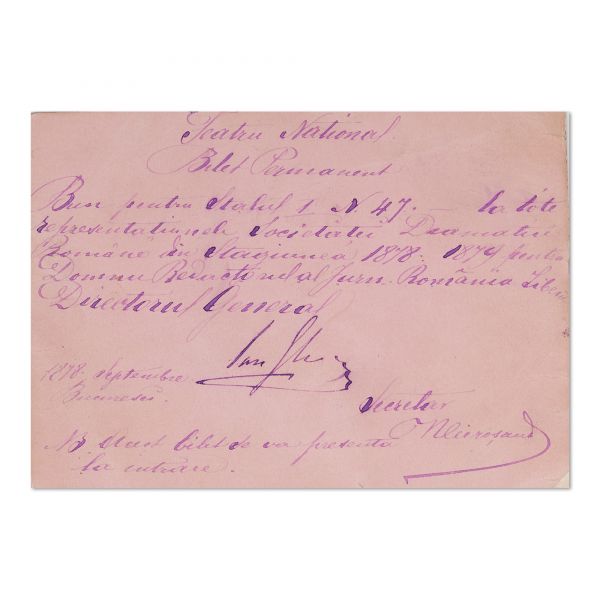 Teatru National.
Bilet Permanent
Bun pentru Stalul 1 N. 47. — la tóte
representatiunele Societatii Dramatice
Române din Stagiunea 1878-1879 pentru
Domnu Redactorul al Jurn. România Libera
Directorul General
Ion Ghica
1878. septembre
Bucuresci.
Secretar
NB Acest bilet se va presenta
la intrare.